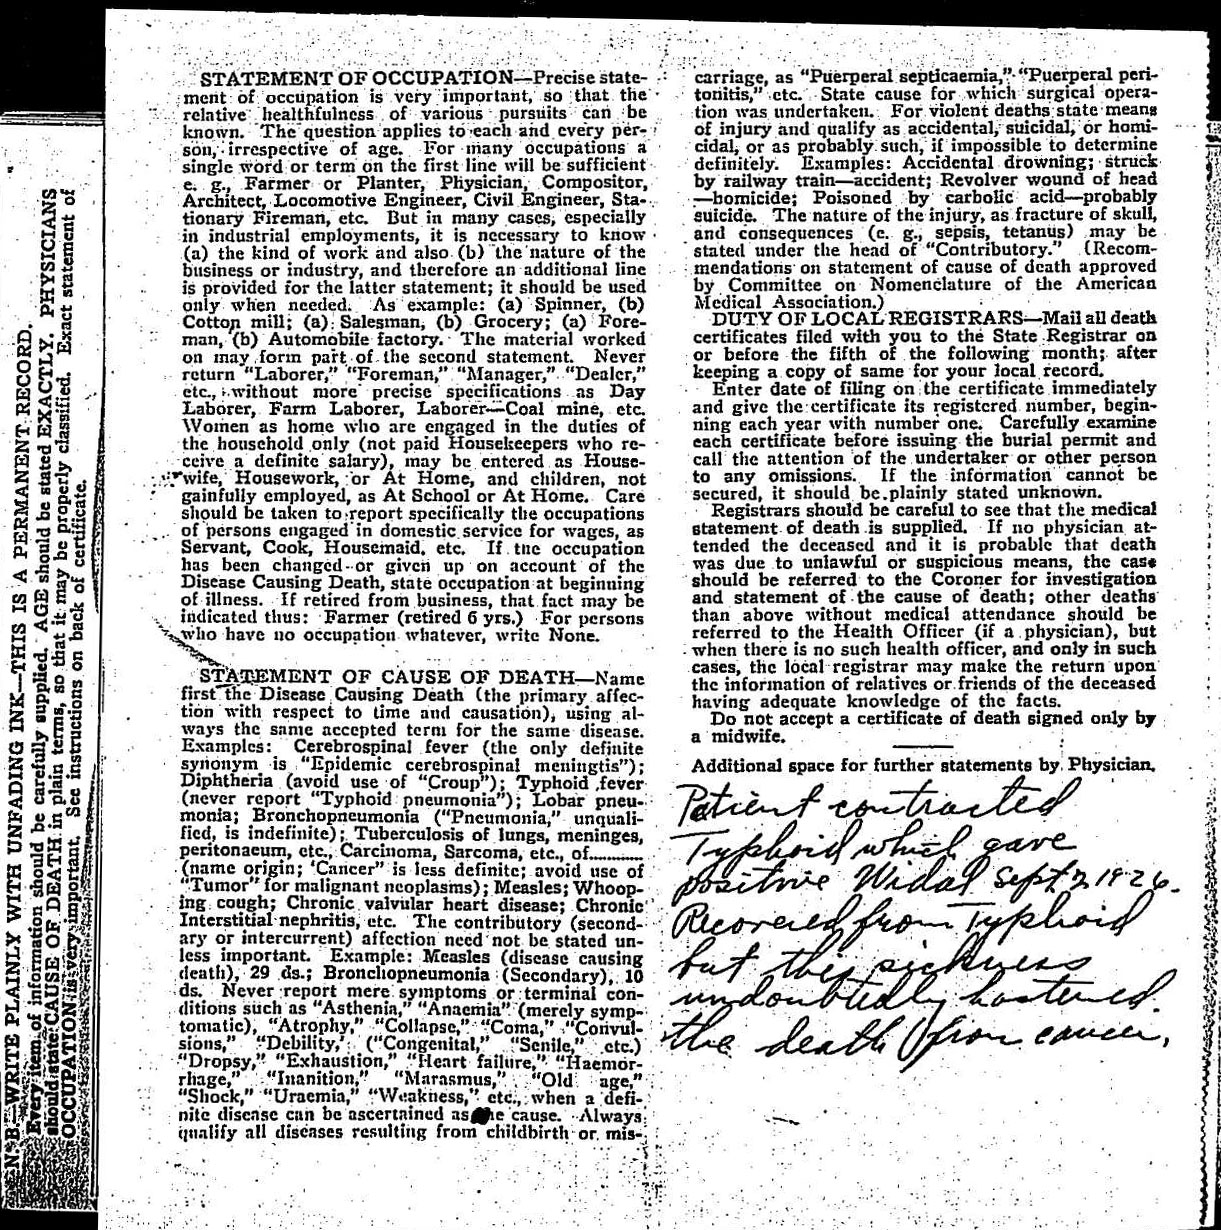 N. B.—WRITE PLAINLY WITH UNFADING INK—THIS IS A PERMANENT RECORD.
Every item of information should be carefully supplied. AGE should be stated EXACTLY. PHYSICIANS
should state CAUSE OF DEATH in plain terms, so that it may be properly classified. Exact statement of
OCCUPATION is very important. See instructions on back of certificate.
STATEMENT OF OCCUPATION—Precise state-
ment of occupation is very important, so that the
relative healthfulness of various pursuits can be
known. The question applies to each and every per-
son, irrespective of age. For many occupations a
single word or term on the first line will be sufficient
e. g., Farmer or Planter, Physician, Compositor,
Architect, Locomotive Engineer, Civil Engineer, Sta-
tionary Fireman, etc. But in many cases, especially
in industrial employments, it is necessary to know
(a) the kind of work and also (b) the nature of the
business or industry, and therefore an additional line
is provided for the latter statement; it should be used
only when needed. As example: (a) Spinner, (b)
Cotton mill; (a) Salesman, (b) Grocery; (a) Fore-
man, (b) Automobile factory. The material worked
on may form part of the second statement. Never
return "Laborer," "Foreman," "Manager," "Dealer,"
etc., without more precise specifications as Day
Laborer, Farm Laborer, Laborer—Coal mine, etc.
Women as home who are engaged in the duties of
the household only (not paid Housekeepers who re-
ceive a definite salary), may be entered as House-
wife, Housework, or At Home, and children, not
gainfully employed, as At School or At Home. Care
should be taken to report specifically the occupations
of persons engaged in domestic service for wages, as
Servant, Cook, Housemaid, etc. If the occupation
has been changed or given up on account of the
Disease Causing Death, state occupation at beginning
of illness. If retired from business, that fact may be
indicated thus: Farmer (retired 6 yrs.) For persons
who have no occupation whatever, write None.
STATEMENT OF CAUSE OF DEATH—Name
first the Disease Causing Death (the primary affec-
tion with respect to time and causation), using al-
ways the same accepted term for the same disease.
Examples: Cerebrospinal fever (the only definite
synonym is "Epidemic cerebrospinal meningtis");
Diphtheria (avoid use of "Croup"); Typhoid fever
(never report "Typhoid pneumonia"); Lobar pneu-
monia; Bronchopneumonia ("Pneumonia," unquali-
fied, is indefinite); Tuberculosis of lungs, meninges,
peritonaeum, etc., Carcinoma, Sarcoma, etc., of............
(name origin; 'Cancer" is less definite; avoid use of
"Tumor" for malignant neoplasms); Measles; Whoop-
ing cough; Chronic valvular heart disease; Chronic
Interstitial nephritis, etc. The contributory (second-
ary or intercurrent) affection need not be stated un-
less important. Example: Measles (disease causing
death), 29 ds.; Bronchopneumonia (Secondary), 10
ds. Never report mere symptoms or terminal con-
ditions such as "Asthenia," "Anaemia" (merely symp-
tomatic), "Atrophy," "Collapse," "Coma," "Convul-
sions," "Debility," ("Congenital," "Senile," etc.)
"Dropsy," "Exhaustion," "Heart failure," "Haemor-
rhage," "Inanition," "Marasmus," "Old age,"
"Shock," "Uraemia," "Weakness," etc., when a defi-
nite disease can be ascertained as the cause. Always
qualify all diseases resulting from childbirth or mis-
carriage, as "Puerperal septicaemia," "Puerperal peri-
tonitis," etc. State cause for which surgical opera-
tion was undertaken. For violent deaths state means
of injury and qualify as accidental, suicidal, or homi-
cidal, or as probably such, if impossible to determine
definitely. Examples: Accidental drowning; struck
by railway train—accident; Revolver wound of head
—homicide; Poisoned by carbolic acid—probably
suicide. The nature of the injury, as fracture of skull,
and consequences (e. g., sepsis, tetanus) may be
stated under the head of "Contributory." (Recom-
mendations on statement of cause of death approved
by Committee on Nomenclature of the American
Medical Association.)
DUTY OF LOCAL REGISTRARS—Mail all death
certificates filed with you to the State Registrar on
or before the fifth of the following month; after
keeping a copy of same for your local record.
Enter date of filing on the certificate immediately
and give the certificate its registered number, begin-
ning each year with number one. Carefully examine
each certificate before issuing the burial permit and
call the attention of the undertaker or other person
to any omissions. If the information cannot be
secured, it should be plainly stated unknown.
Registrars should be careful to see that the medical
statement of death is supplied. If no physician at-
tended the deceased and it is probable that death
was due to unlawful or suspicious means, the case
should be referred to the Coroner for investigation
and statement of the cause of death; other deaths
than above without medical attendance should be
referred to the Health Officer (if a physician), but
when there is no such health officer, and only in such
cases, the local registrar may make the return upon
the information of relatives or friends of the deceased
having adequate knowledge of the facts.
Do not accept a certificate of death signed only by
a midwife.
Additional space for further statements by Physician.
Patient contracted
Typhoid which gave
positive Widal Sept 2 1926.
Recovered from Typhoid
but this sickness
undoubtedly hastened
the death from cancer.